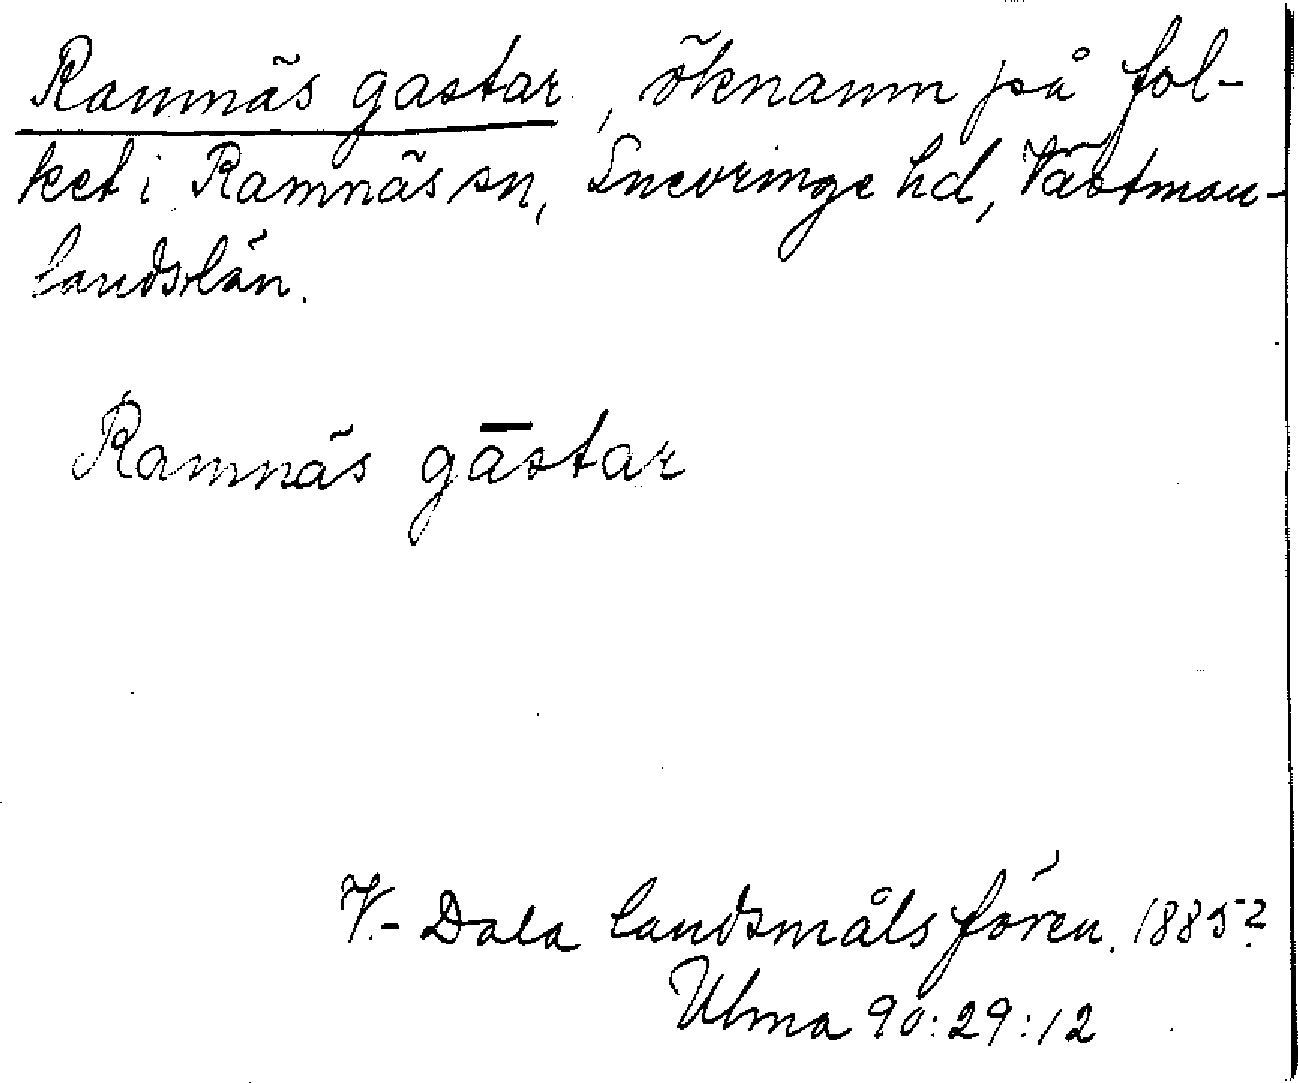 Ramnäs gastar, öknamn på fol-
ket i Ramnäs sn, Snevringe hd, Västman-
landslän.
Ramnäs gāstar
V.-Dala landsmålsfören. 1885?
Ulma 90:29:12